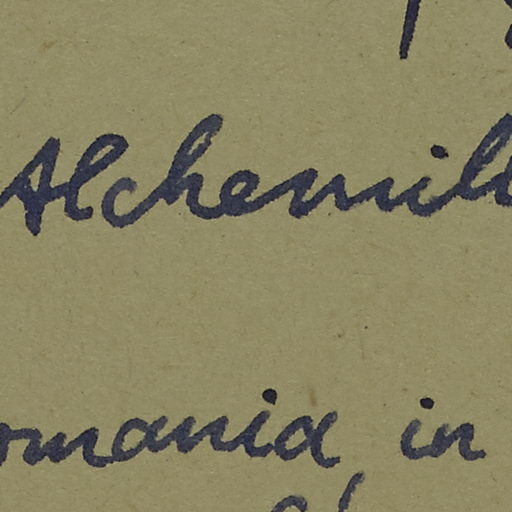 Alchemill
omania in